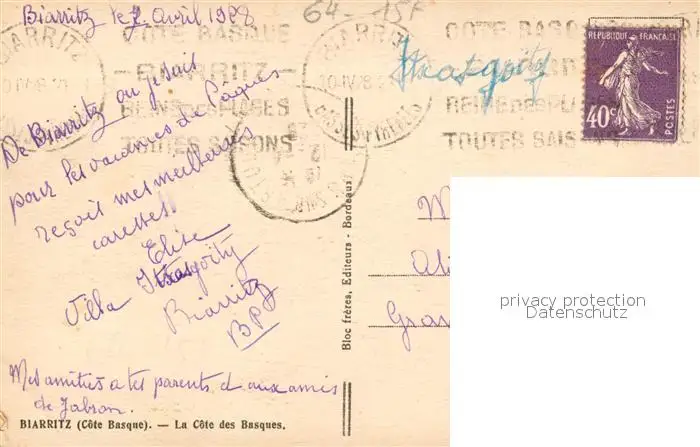 Biarritz le 2 Avril 1928
64 - 15F
BIARRITZ
10-IV 28
COTE BASQUE
- BIARRITZ -
REINE DES PLAGES
TOUTES SAISONS
BIARRITZ
10-IV 28
BSES PYRENEES
COTE BASQUE
REINE DES PLAGES
TOUTES SAISONS
REPUBLIQUE FRANÇAISE
40c
POSTES
De Biarritz ou je suis
pour les vacances de Pâques
reçoit mes meilleures
caresses!!
Elise
Villa
Biarritz
BP
Bloc frères, Editeurs - Bordeaux
M
Ali
Gra
privacy protection
Datenschutz
Mes amitiés a tes parents et aux amis
de Jabron.
BIARRITZ (Côte Basque). — La Côte des Basques.